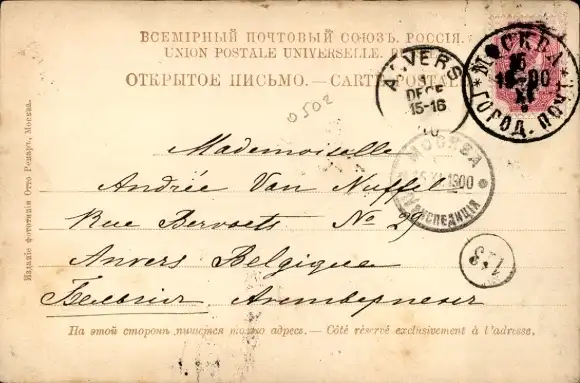 ВСЕМІРНЫЙ ПОЧТОВЫЙ СОЮЗЪ. РОССІЯ.
UNION POSTALE UNIVERSELLE.
ОТКРЫТОЕ ПИСЬМО. — CARTE POSTALE
МОСКВА
16
XI
ГОРОД. ПОЧТ
ANVERS
1
DECE
15-16
0502
Mademoiselle
Andrée Van Nuffel
Rue Bervoets No 29
Anvers Belgique
Бельгія Антверпенъ
МОСКВА
XI 1900
ЭКСПЕДИЦІЯ
123
На этой сторонѣ пишется только адресъ. — Côté réservé exclusivement à l'adresse.
Изданіе фототипіи Отто Ренаръ, Москва.